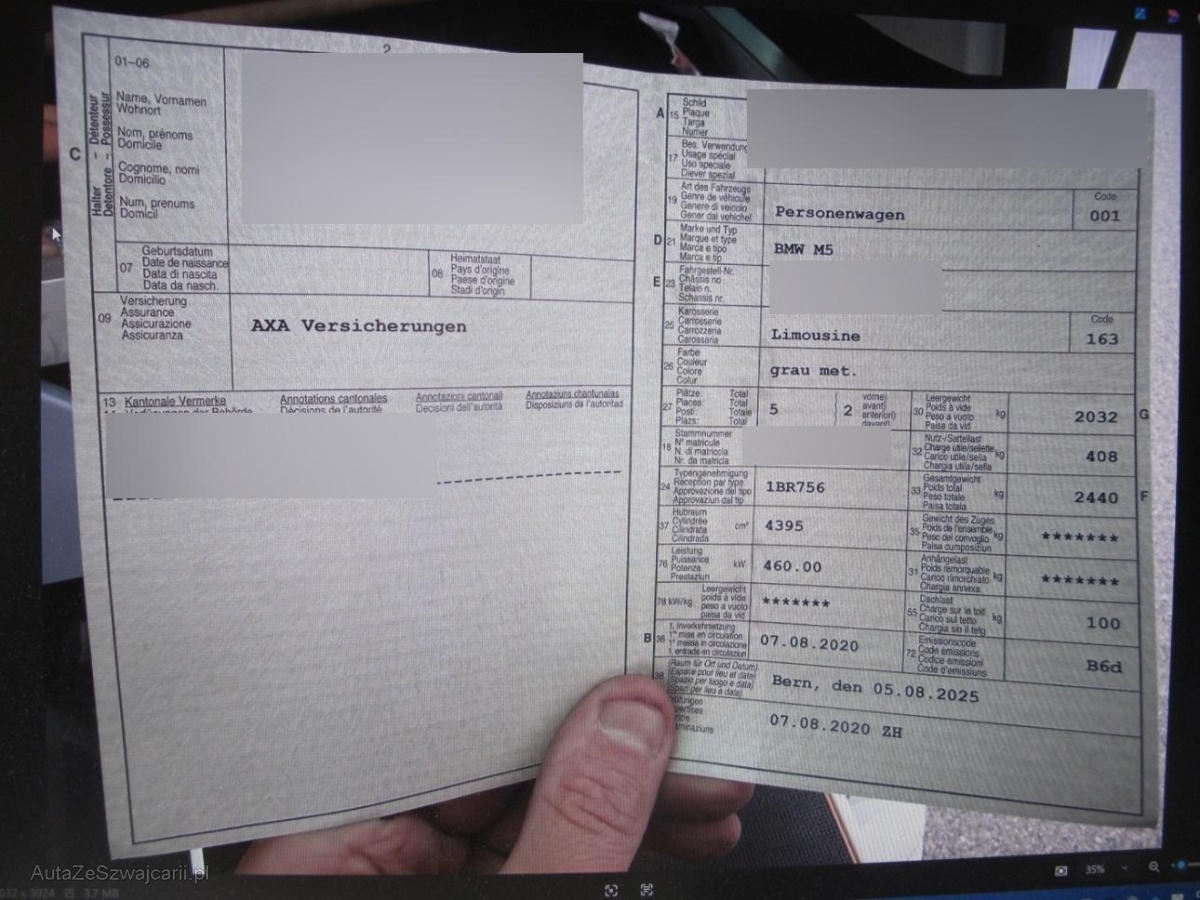 2
01-06
Name, Vornamen
Wohnort
Nom, prénoms
Domicile
Cognome, nomi
Domicilio
Num, prenums
Domicil
C
Halter - Détenteur
Detentore - Possessur
07
Geburtsdatum
Date de naissance
Data di nascita
Data da nasch.
08
Heimatstaat
Pays d'origine
Paese d'origine
Stadi d'origin
09
Versicherung
Assurance
Assicurazione
Assicuranza
AXA Versicherungen
13 Kantonale Vermerke
Annotations cantonales
Décisions de l'autorité
Annotazioni cantonali
Decisioni dell'autorità
Annotaziuns chantunalas
Disposiziuns da l'autoritad
14 Verfügungen der Behörde
A 15
Schild
Plaque
Targa
Numer
17
Bes. Verwendung
Usage spécial
Uso speciale
Diever spezial
19
Art des Fahrzeugs
Genre de véhicule
Genere di veicolo
Gener dal vehichel
Personenwagen
Code
001
D 21
Marke und Typ
Marque et type
Marca e tipo
Marca e tip
BMW M5
E 23
Fahrgestell-Nr.
Châssis no
Telaio n.
Schassis nr.
25
Karosserie
Carrosserie
Carrozzeria
Carossaria
Limousine
Code
163
26
Farbe
Couleur
Colore
Colur
grau met.
27
Plätze: Total
Places: Total
Posti: Totale
Plazs: Total
5
2
vorne)
avant)
anteriori)
davant)
30
Leergewicht
Poids à vide
Peso a vuoto
Paisa da vid
kg
2032
G
18
Stammnummer
N° matricule
N. di matricola
Nr. da matricla
32
Nutz-/Sattellast
Charge utile/sellette
Carico utile/sella
Chargia utila/sella
kg
408
24
Typengenehmigung
Réception par type
Approvazione del tipo
Approvaziun dal tip
1BR756
33
Gesamtgewicht
Poids total
Peso totale
Paisa totala
kg
2440
F
37
Hubraum
Cylindrée
Cilindrata
Cilindrada
cm³
4395
35
Gewicht des Zuges
Poids de l'ensemble
Peso del convoglio
Paisa cumposiziun
kg
*******
76
Leistung
Puissance
Potenza
Prestaziun
kW
460.00
31
Anhängelast
Poids remorquable
Carico rimorchiato
Chargia annexa
kg
*******
78 kW/kg
Leergewicht
poids à vide
peso a vuoto
paisa da vid
*******
55
Dachlast
Charge sur le toit
Carico sul tetto
Chargia sin il tetg
kg
100
B 36
1. Inverkehrsetzung
1re mise en circulation
1a messa in circolazione
1. entrada en circulaziun
07.08.2020
72
Emissionscode
Code émissions
Codice emissioni
Code d'emissiuns
B6d
38
(Raum für Ort und Datum)
(Espace pour lieu et date)
(Spazio per luogo e data)
(Spazi per lieu e data)
Bern, den 05.08.2025
07.08.2020 ZH
AutaZeSzwajcarii.pl
3.7 MB
35%